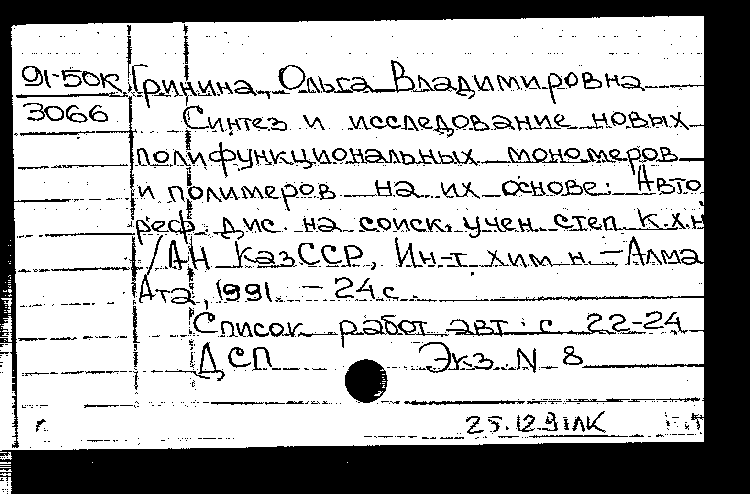 91-50к Гринина, Ольга Владимировна
3066 Синтез и исследование новых
полифункциональных мономеров
и полимеров на их основе: Авто
реф. дис. на соиск. учен. степ. к.х.н
/АН КазССР, Ин-т хим. н. - Алма
Ата, 1991. - 24 с.
Список работ авт.: с. 22-24
ДСП Экз. N 8
25.12.91